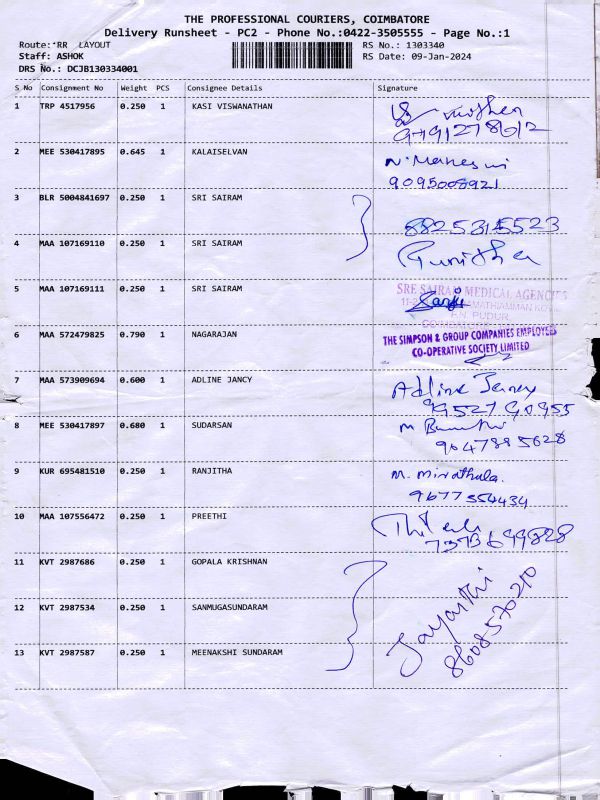 THE PROFESSIONAL COURIERS, COIMBATORE
Delivery Runsheet - PC2 - Phone No.:0422-3505555 - Page No.:1
Route:'RR LAYOUT
RS No.: 1303340
Staff: ASHOK
RS Date: 09-Jan-2024
DRS No.: DCJB130334001
S No Consignment No Weight PCS Consignee Details Signature
1 TRP 4517956 0.250 1 KASI VISWANATHAN
2 MEE 530417895 0.645 1 KALAISELVAN
9095008921
3 BLR 5004841697 0.250 1 SRI SAIRAM
8825315523
4 MAA 107169110 0.250 1 SRI SAIRAM
5 MAA 107169111 0.250 1 SRI SAIRAM
SRE SAIRAM MEDICAL AGENCIES
P.N. PUDUR
6 MAA 572479825 0.790 1 NAGARAJAN
THE SIMPSON & GROUP COMPANIES EMPLOYEES
CO-OPERATIVE SOCIETY LIMITED
7 MAA 573909694 0.600 1 ADLINE JANCY Adline Jancy
9952790955
8 MEE 530417897 0.680 1 SUDARSAN
9047885628
9 KUR 695481510 0.250 1 RANJITHA
9677554434
10 MAA 107556472 0.250 1 PREETHI
7373699828
11 KVT 2987686 0.250 1 GOPALA KRISHNAN
12 KVT 2987534 0.250 1 SANMUGASUNDARAM
Jayanthi
8608570210
13 KVT 2987587 0.250 1 MEENAKSHI SUNDARAM